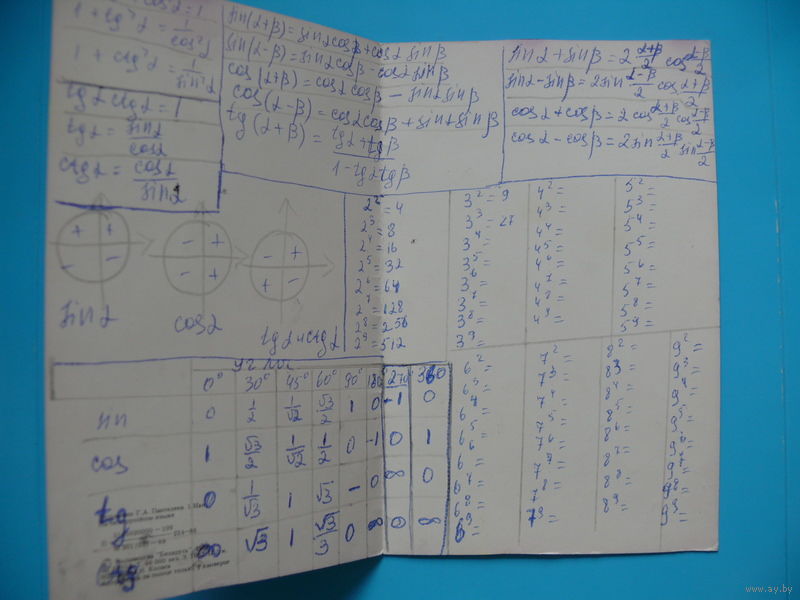 cos²α=1
1+tg²α=1/cos²α
1+ctg²α=1/sin²α
tgα ctgα=1
tgα=sinα/cosα
ctgα=cosα/sinα
sin(α+β)=sinαcosβ+cosα sinβ
sin(α-β)=sinαcosβ-cosα sinβ
cos(α+β)=cosαcosβ-sinαsinβ
cos(α-β)=cosαcosβ+sinαsinβ
tg(α+β)=tgα+tgβ/1-tgαtgβ
sinα+sinβ=2 α+β/2 cos α-β/2
sinα-sinβ=2sin α-β/2 cos α+β/2
cosα+cosβ=2cos α+β/2 cos α-β/2
cosα-cosβ=2sin α+β/2 sin α-β/2
+ +
- -
sinα
- +
- +
cosα
- +
+ -
tgα и ctgα
2²=4
2³=8
2⁴=16
2⁵=32
2⁶=64
2⁷=128
2⁸=256
2⁹=512
3²=9
3³=27
3⁴=
3⁵=
3⁶=
3⁷=
3⁸=
3⁹=
4²=
4³=
4⁴=
4⁵=
4⁶=
4⁷=
4⁸=
4⁹=
5²=
5³=
5⁴=
5⁵=
5⁶=
5⁷=
5⁸=
5⁹=
углы
0° 30° 45° 60° 90° 180 270 360
sin 0 1/2 1/√2 √3/2 1 0 -1 0
cos 1 √3/2 1/√2 1/2 0 -1 0 1
tg 0 1/√3 1 √3 - 0 ∞ 0
ctg ∞ √3 1 √3/3 0 ∞ 0 ∞
6²=
6³=
6⁴=
6⁵=
6⁶=
6⁷=
6⁸=
6⁹=
7²
7³=
7⁴=
7⁵=
7⁶=
7⁷=
7⁸=
7⁹=
8²=
8³=
8⁴=
8⁵=
8⁶=
8⁷=
8⁸=
8⁹=
9²=
9³=
9⁴=
9⁵=
9⁶=
9⁷=
9⁸=
9⁹=
www.ay.by